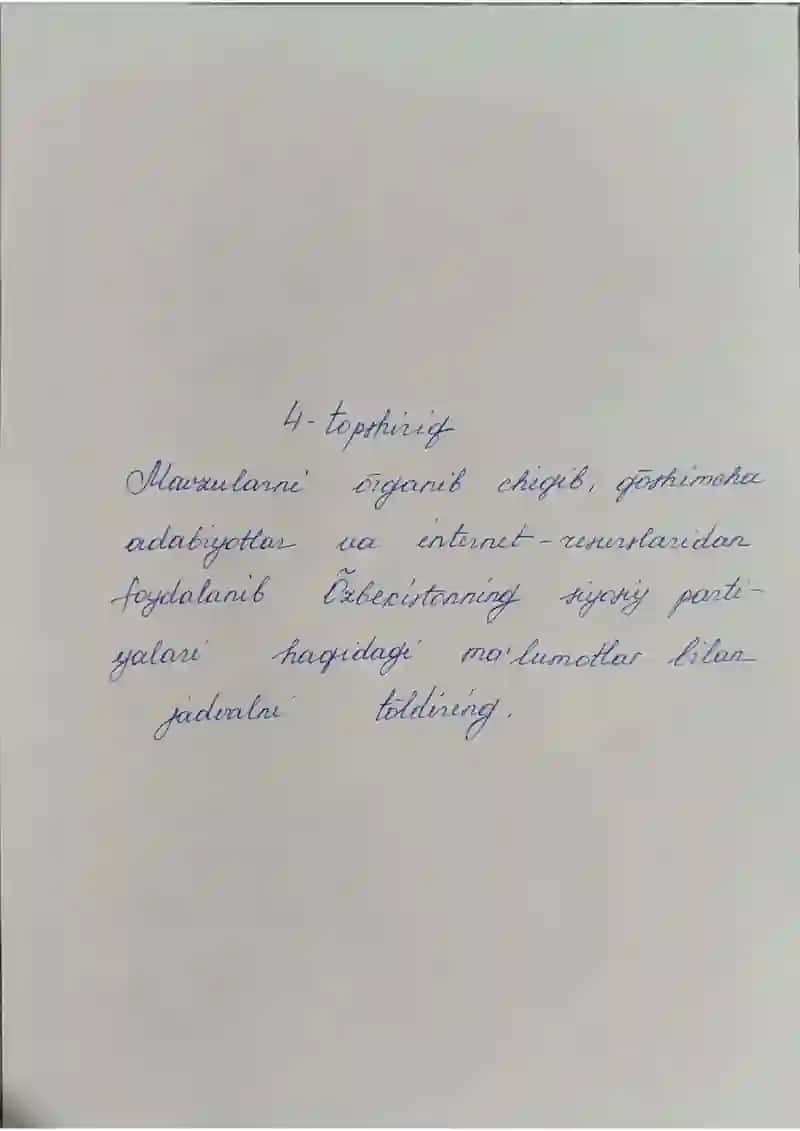 4-topshiriq
Mavzularni õrganib chiqib, qõshimcha
adabiyotlar va internet-resurslaridan
foydalanib Õzbekistonning siyosiy parti-
yalari haqidagi ma'lumotlar bilan
jadvalni tõldiring.